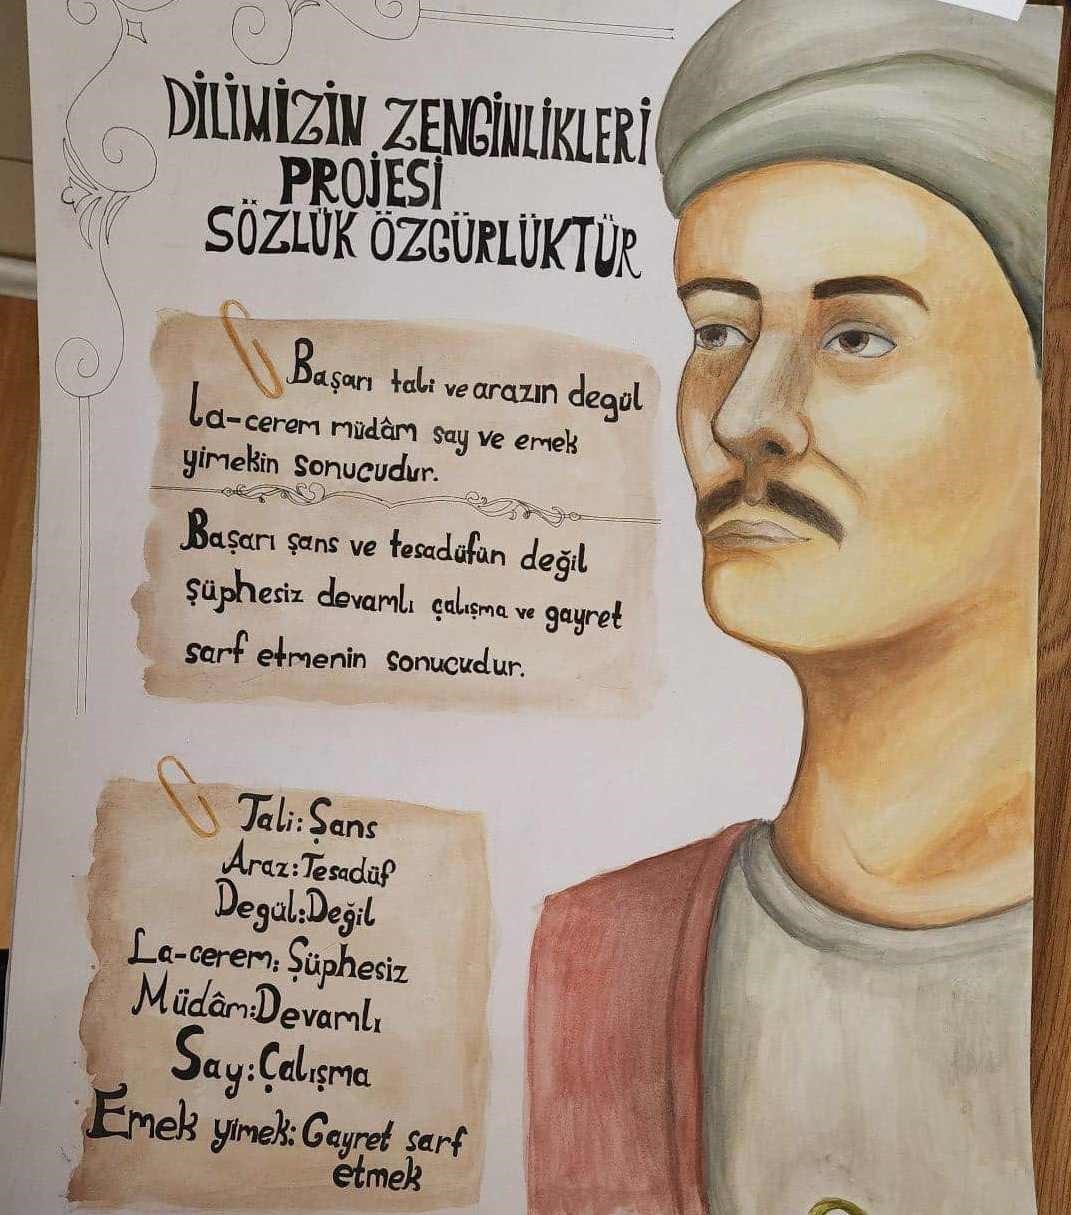 DİLİMİZİN ZENGİNLİKLERİ
PROJESİ
SÖZLÜK ÖZGÜRLÜKTÜR
Başarı tali ve arazın degül
la-cerem müdâm say ve emek
yimekin sonucudur.
Başarı şans ve tesadüfün değil
şüphesiz devamlı çalışma ve gayret
sarf etmenin sonucudur.
Tali: Şans
Araz: Tesadüf
Degül: Değil
La-cerem: Şüphesiz
Müdâm: Devamlı
Say: Çalışma
Emek yimek: Gayret sarf
etmek